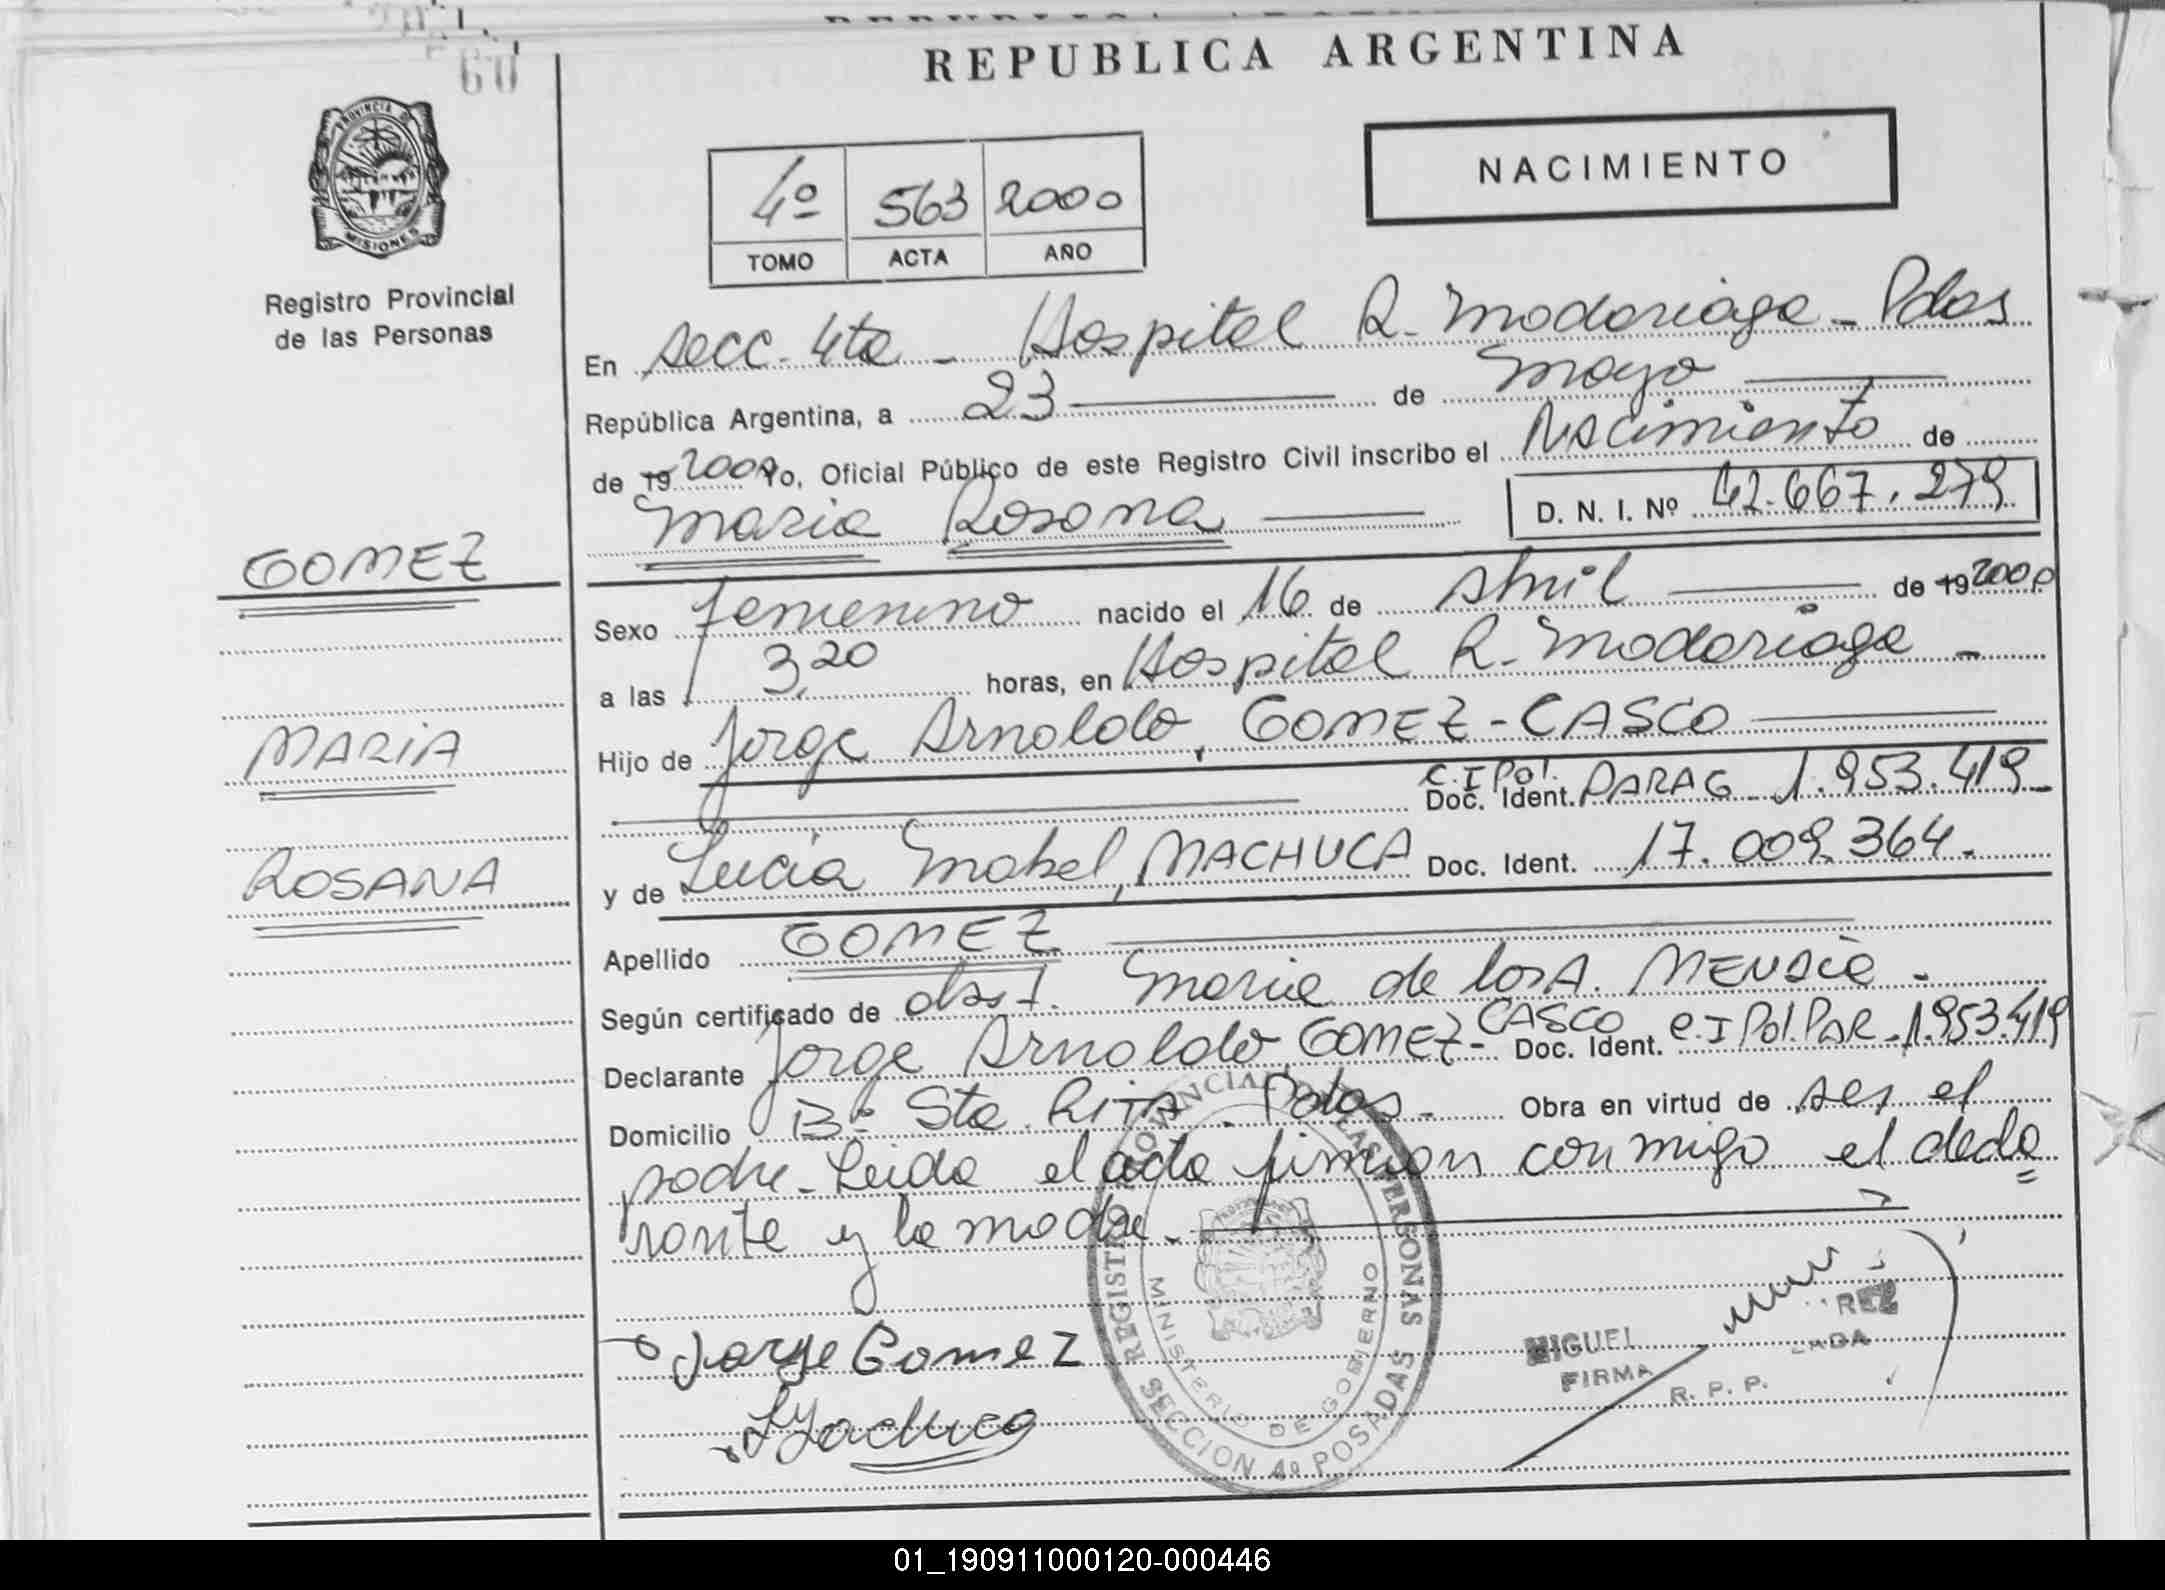 60
REPUBLICA ARGENTINA
PROVINCIA DE MISIONES
Registro Provincial
de las Personas
4º 563 2000
TOMO ACTA AÑO
NACIMIENTO
En Secc. 4ta - Hospital R. Madariaga - Pdas
República Argentina, a 23 de Mayo
de 19 2000 Yo, Oficial Público de este Registro Civil inscribo el Nacimiento de
Maria Rosana D. N. I. Nº 42.667.279
GOMEZ
Sexo femenino nacido el 16 de Abril de 19 2000
a las 3,20 horas, en Hospital R. Madariaga -
MARIA
Hijo de Jorge Arnoldo, GOMEZ - CASCO
C.I Pol.
Doc. Ident. PARAG 1.953.419-
ROSANA
y de Lucia Mabel, MACHUCA Doc. Ident. 17.009.364.-
Apellido GOMEZ
Según certificado de obst. Maria de los A. MENDIE -
Declarante Jorge Arnoldo GOMEZ - CASCO Doc. Ident. C.I Pol. PAR - 1.953.419
Domicilio Bº Sta. RITA. Pdas. - Obra en virtud de ser el
padre - Leida el acta firman conmigo el decla=
rante y la madre. -
REGISTRO PROVINCIAL DE LAS PERSONAS
MINISTERIO DE GOBIERNO
SECCION 4º POSADAS
Jorge Gomez
LMachuca
MIGUEL REZ
FIRMA
R. P. P.
01_190911000120-000446